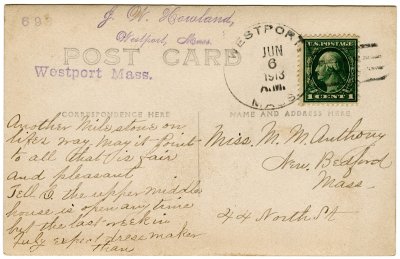 693
J. W. Howland,
Westport, Mass.
POST CARD
Westport Mass.
WESTPORT
JUN
6
1913
A.M.
MASS.
U.S. POSTAGE
1 CENT 1
CORRESPONDENCE HERE
NAME AND ADDRESS HERE
Another Milestone on
life's way. May it point
to all that is fair
and pleasant.
Tell the upper middle
house is open any time
but the last week in
July expect dressmaker
then
Miss. M. M. Anthony
New Bedford
Mass.
44 North St